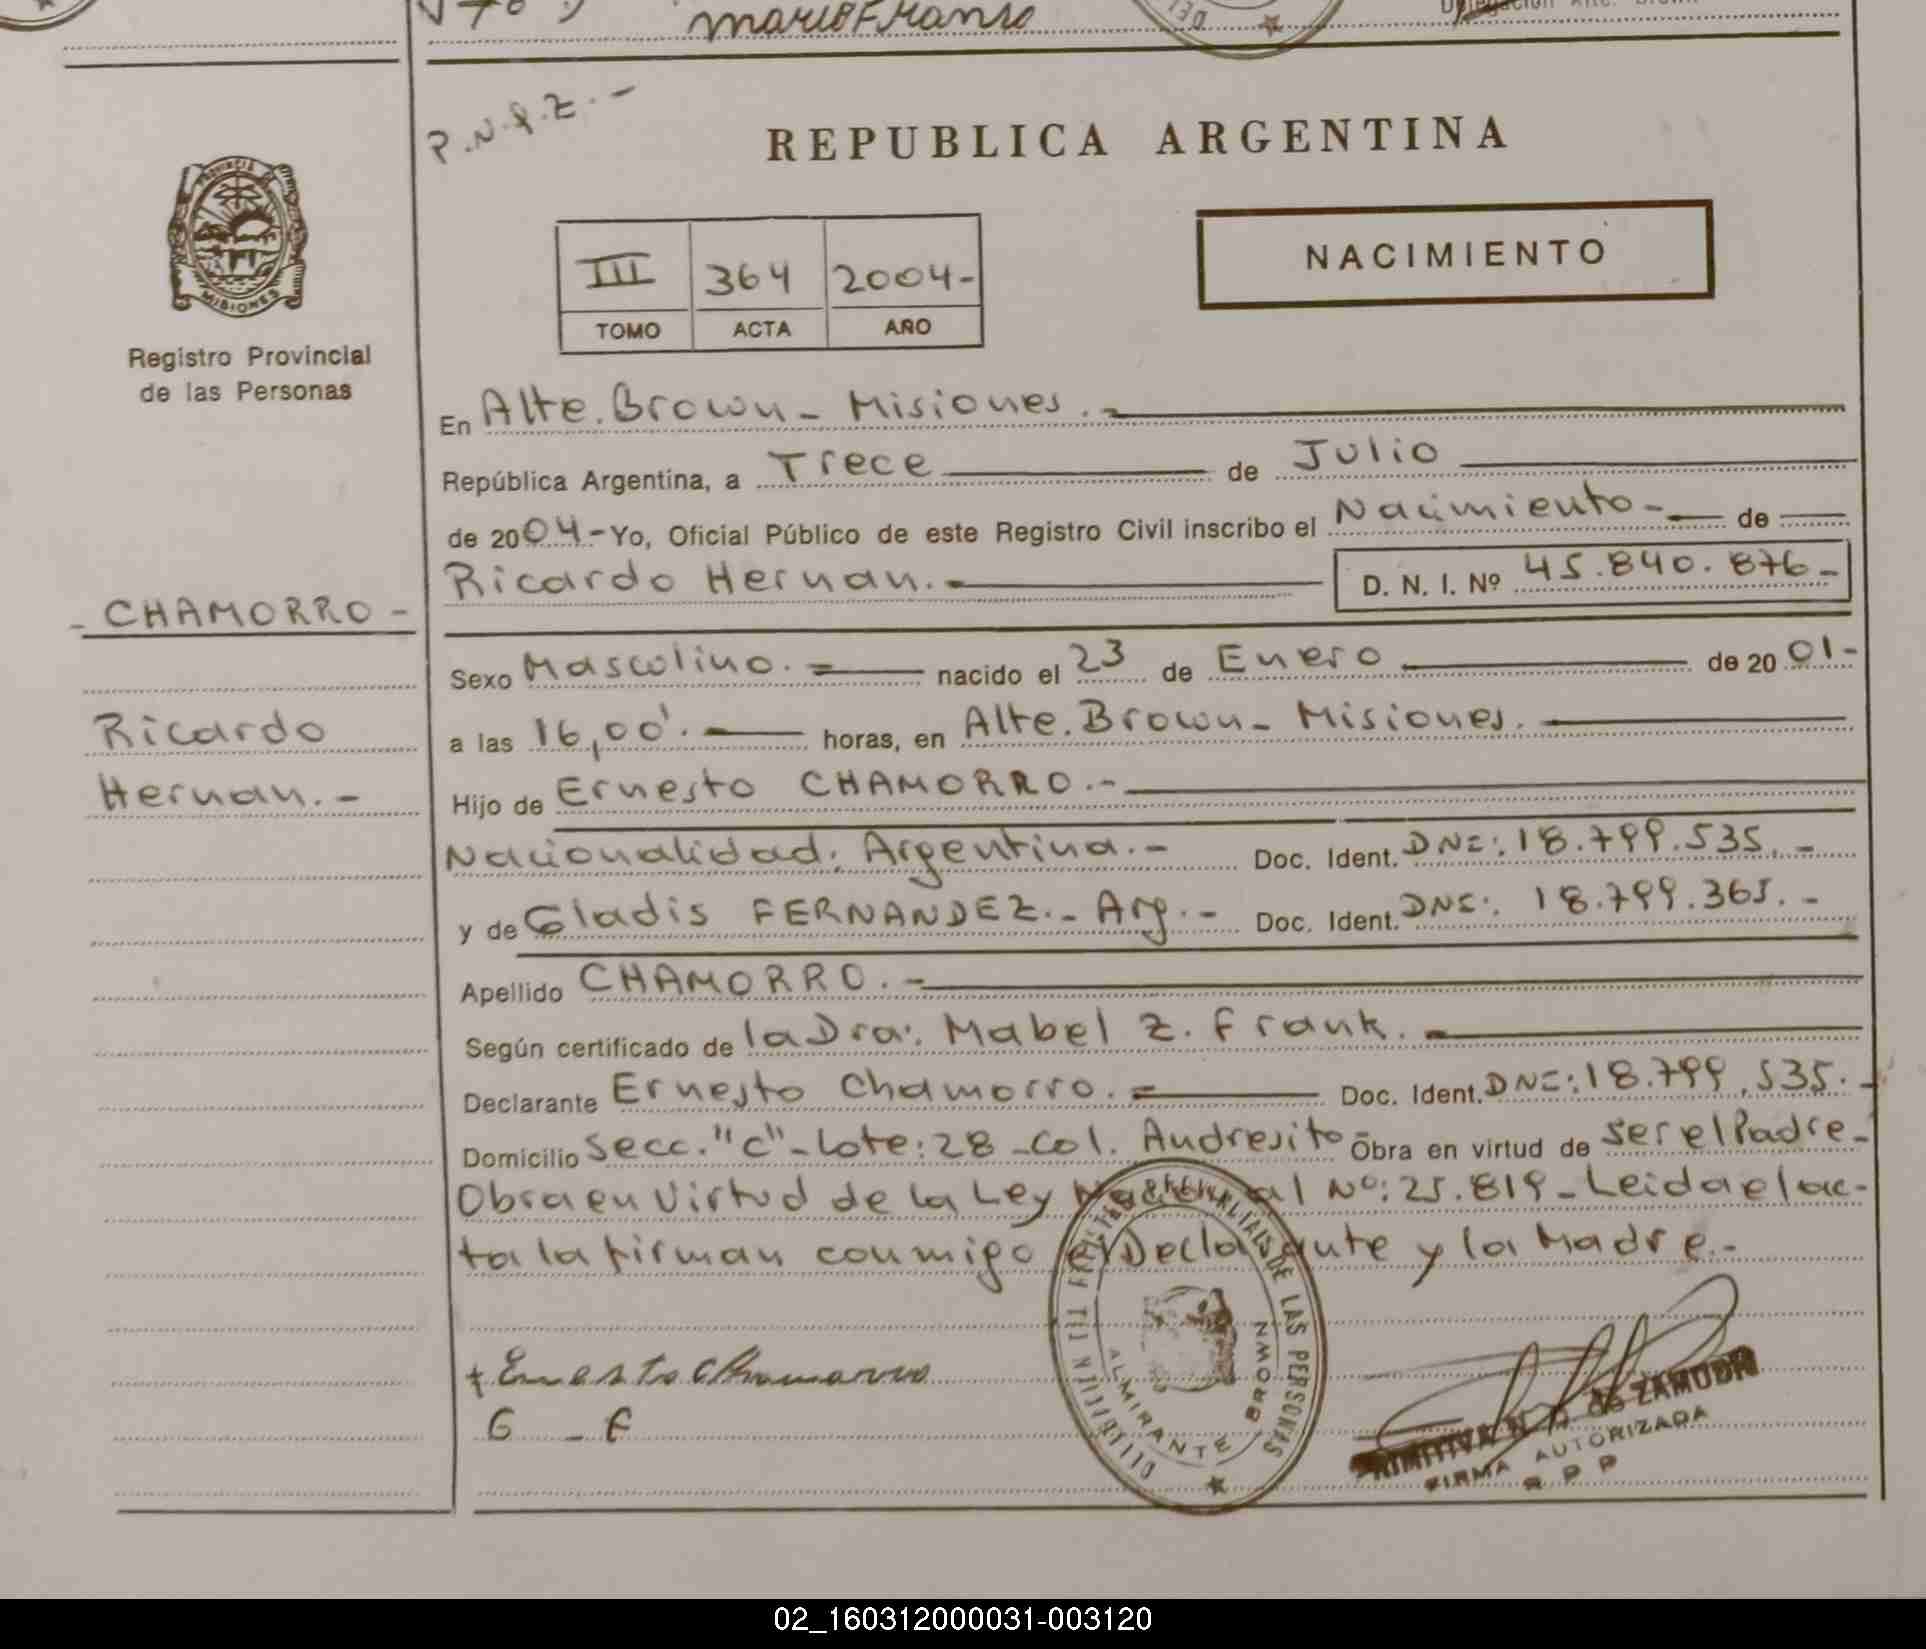 REPUBLICA ARGENTINA
PROVINCIA DE
MISIONES
Registro Provincial
de las Personas
III 364 2004-
TOMO ACTA AÑO
NACIMIENTO
En Alte. Brown - Misiones.-
República Argentina, a Trece de Julio
de 2004- Yo, Oficial Público de este Registro Civil inscribo el Nacimiento - de
Ricardo Hernan.- D. N. I. Nº 45.840.876-
- CHAMORRO -
Ricardo
Hernan.-
Sexo Masculino.= nacido el 23 de Enero de 20 01-
a las 16,00'.- horas, en Alte. Brown - Misiones.
Hijo de Ernesto CHAMORRO.-
Nacionalidad: Argentina.- Doc. Ident. DNI: 18.799.535.-
y de Gladis FERNANDEZ.- Arg.- Doc. Ident. DNI: 18.799.365.-
Apellido CHAMORRO.-
Según certificado de la Dra: Mabel Z. Frank.
Declarante Ernesto Chamorro.= Doc. Ident. DNI: 18.799.535.-
Domicilio Secc. "C" - Lote: 28 - Col. Andresito - Obra en virtud de ser el Padre-
Obra en Virtud de la Ley Nacional Nº: 25.819 - Leida el ac-
ta la firman conmigo el Declarante y la Madre.-
Ernesto Chamorro
G - F
DE LAS PERSONAS
ALMIRANTE BROWN
de ZAMUDIO
FIRMA AUTORIZADA
R P P
02_160312000031-003120